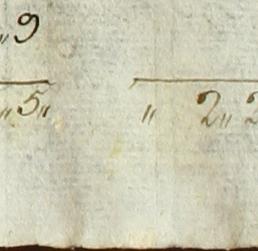 „9
„5„ „ 2„ 2